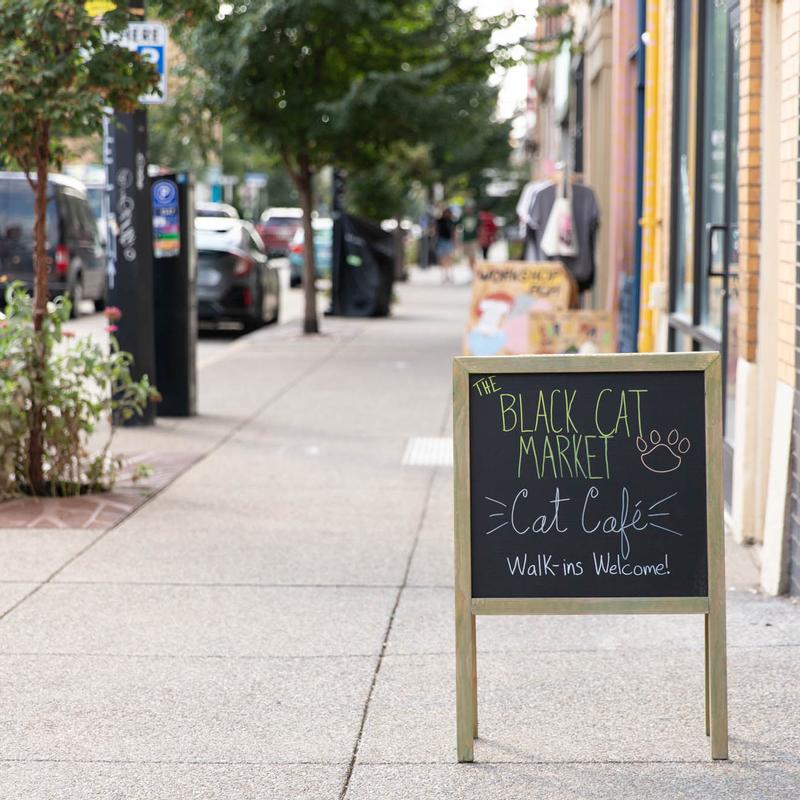 THE
BLACK CAT
MARKET
Cat Café
Walk-ins Welcome!
WORKSHOP
HERE
P